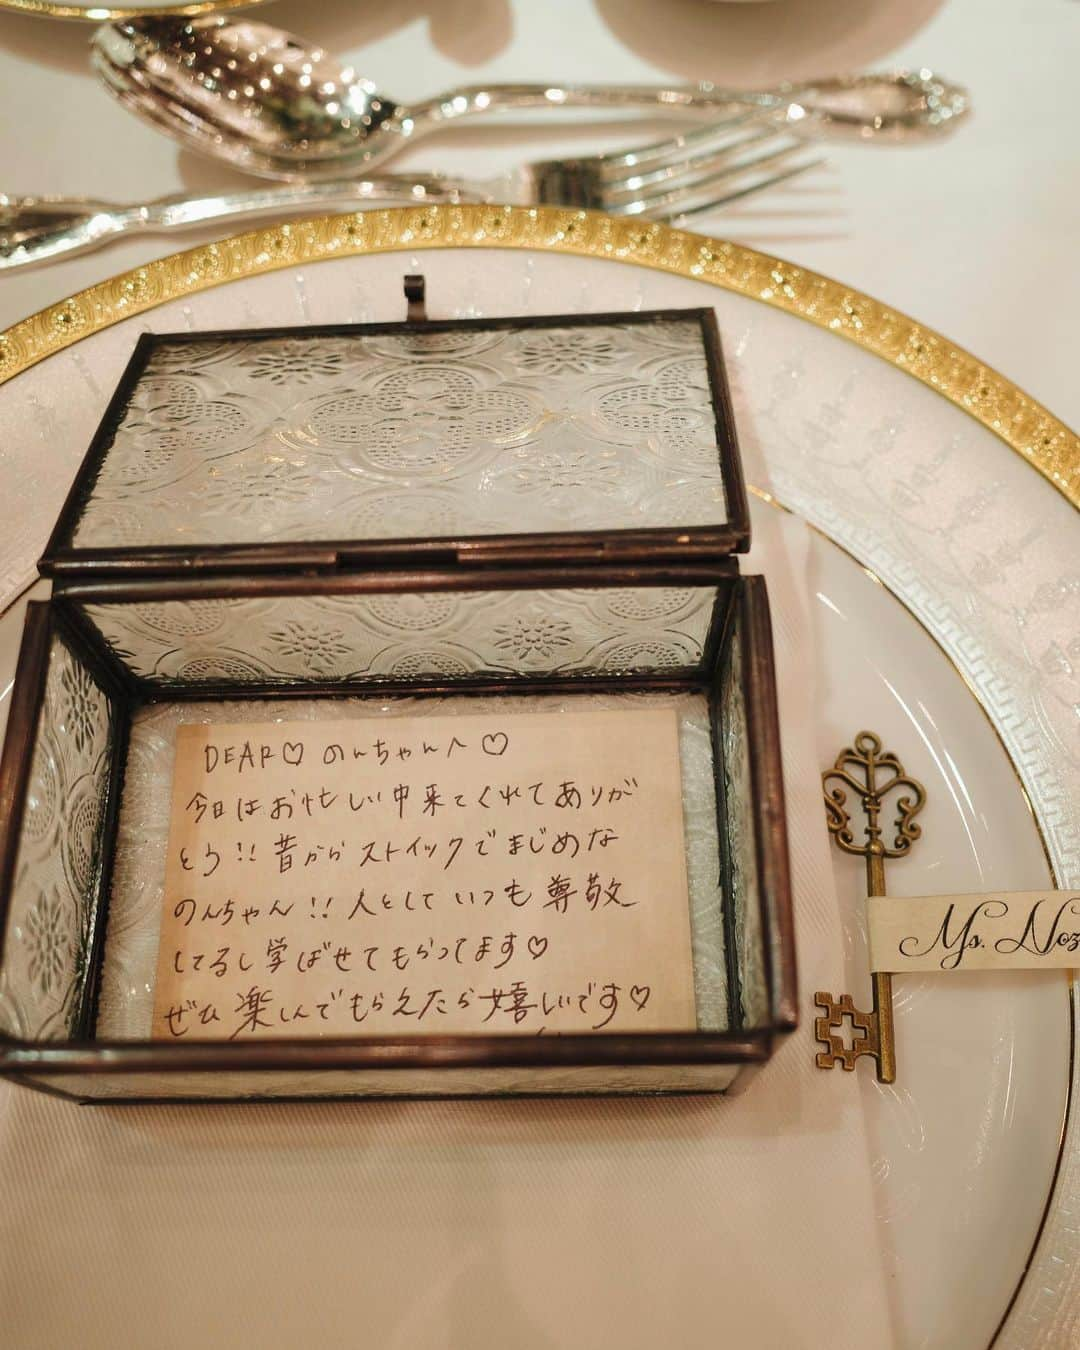 DEAR♡ のんちゃんへ♡
今日はお忙しい中来てくれてありが
とう!! 昔からストイックでまじめな
のんちゃん!! 人としていつも尊敬
してるし学ばせてもらってます♡
ぜひ楽しんでもらえたら嬉しいです♡
Ms. Noz